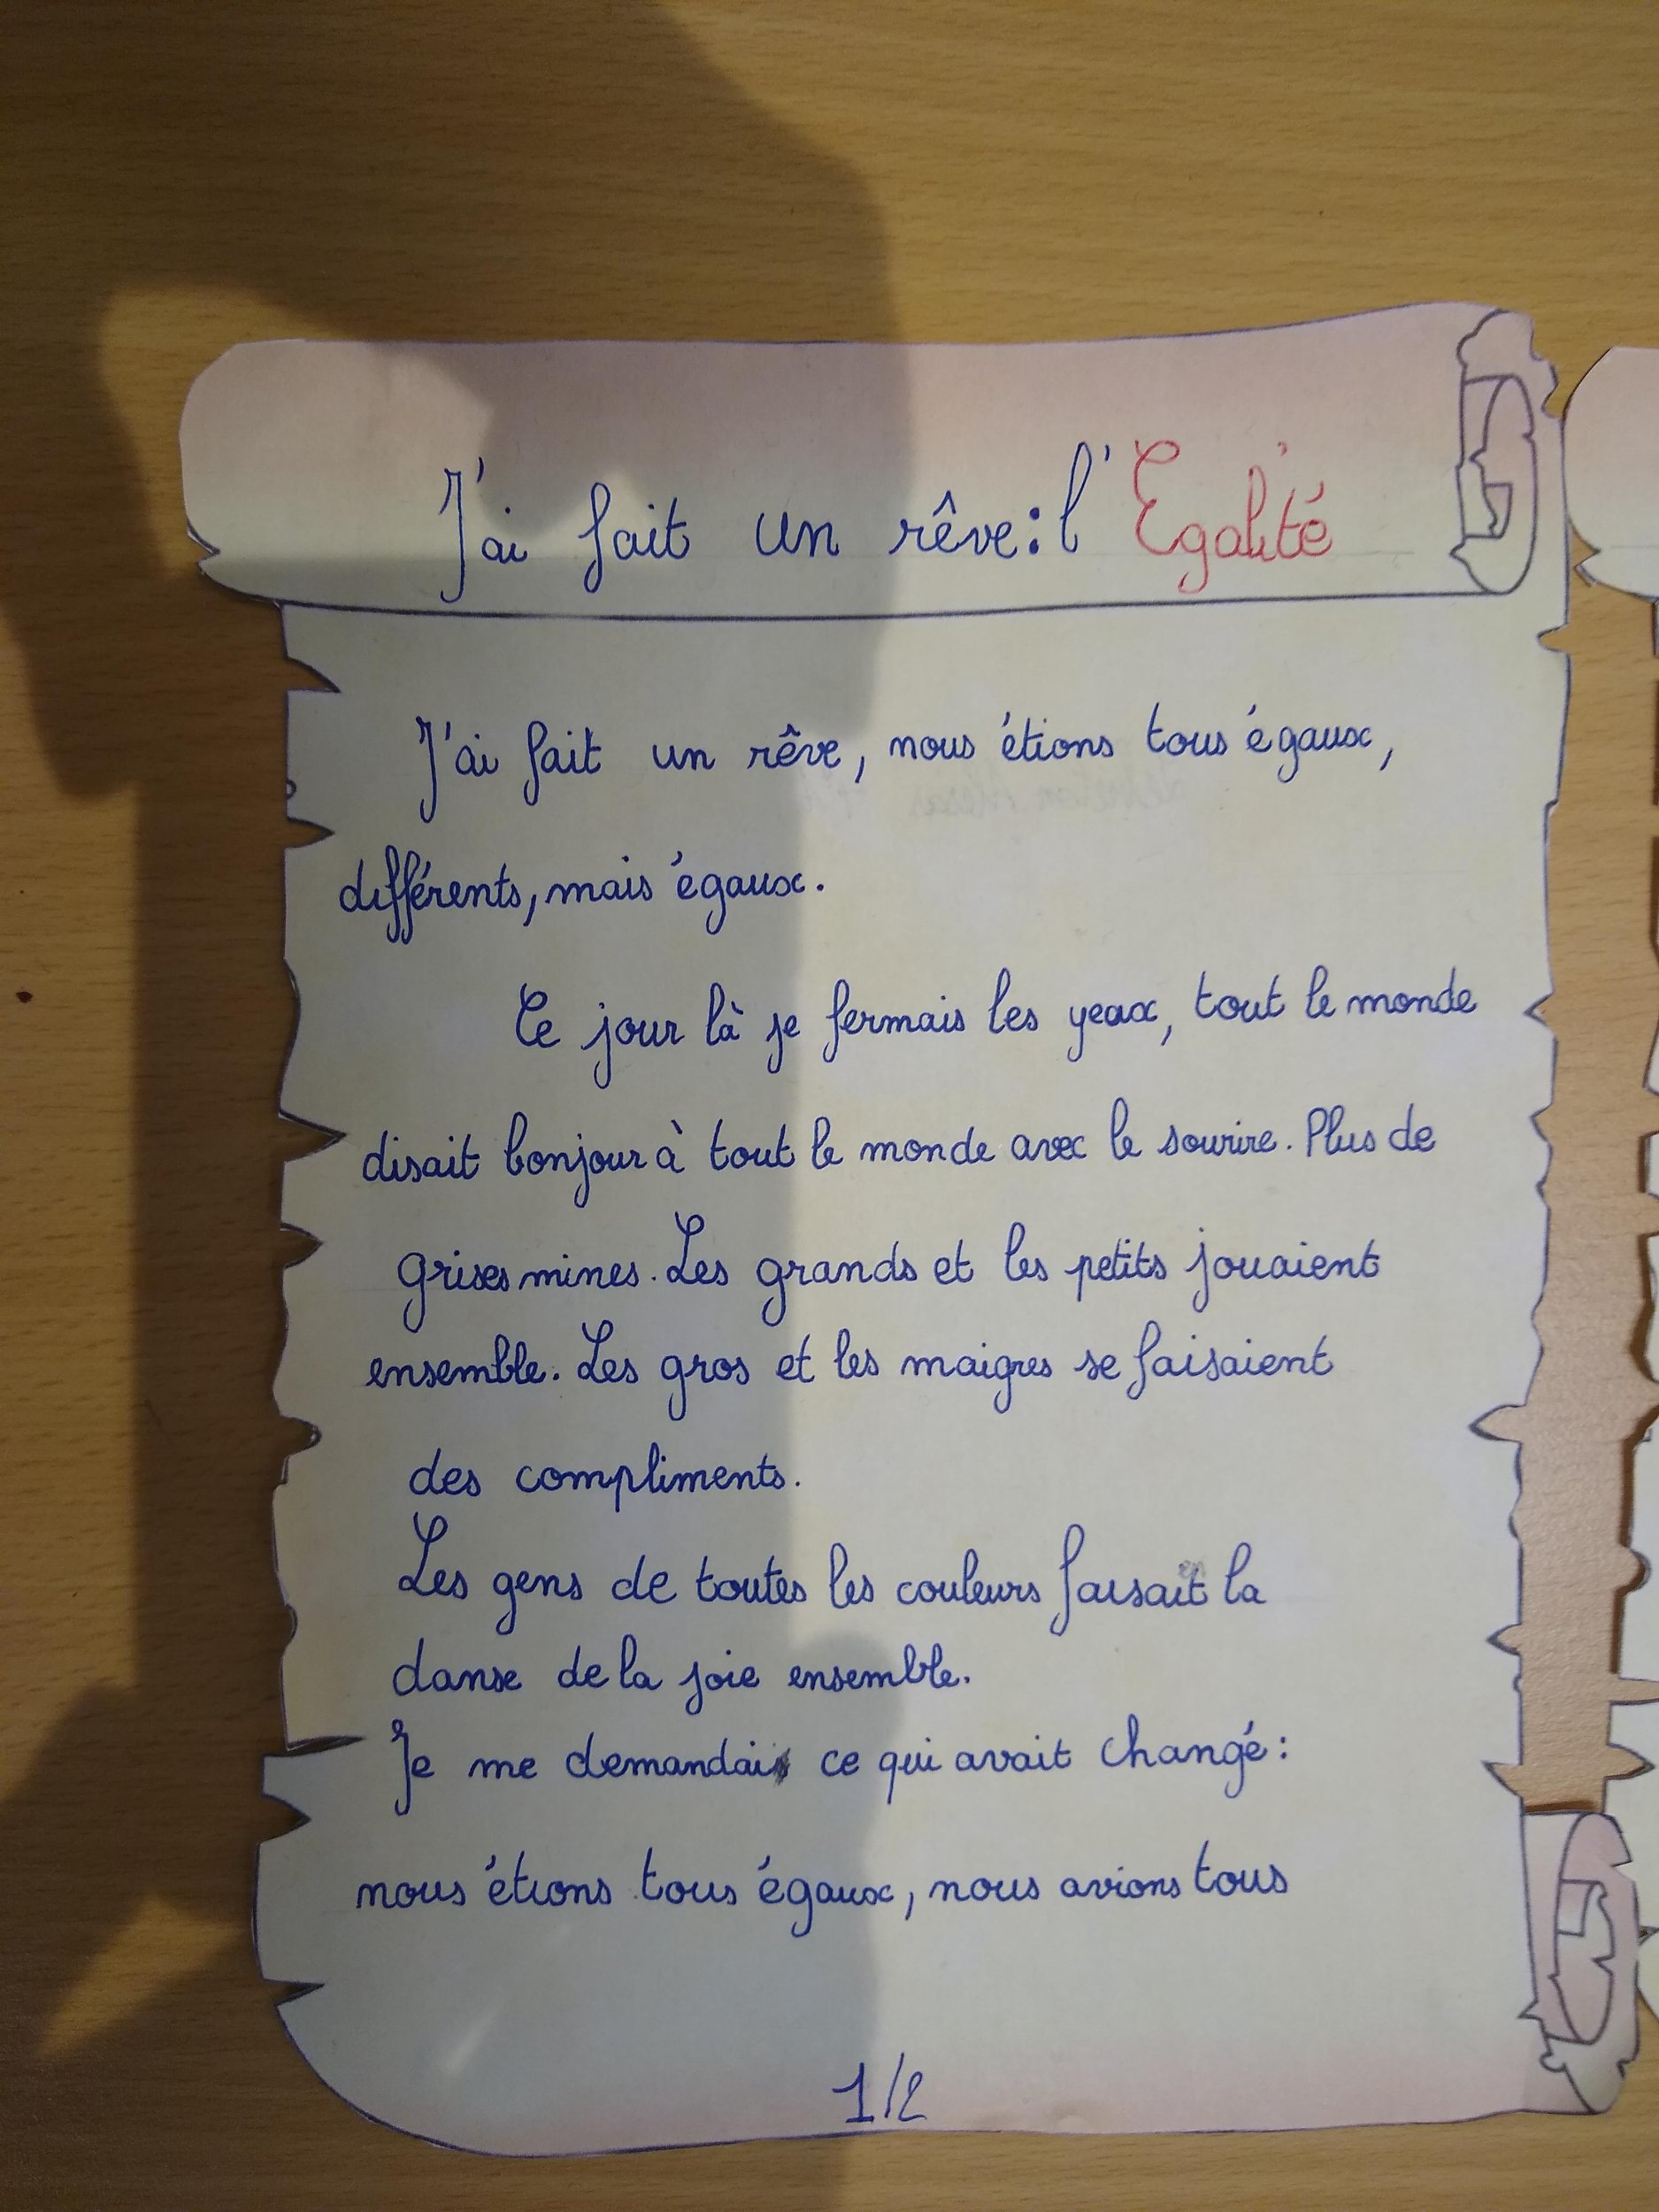 J'ai fait un rêve : l'Egalité
J'ai fait un rêve, nous étions tous égaux,
différents, mais égaux.
Ce jour là je fermais les yeax, tout le monde
disait bonjour à tout le monde avec le sourire. Plus de
grises mines. Les grands et les petits jouaient
ensemble. Les gros et les maigres se faisaient
des compliments.
Les gens de toutes les couleurs faisait en la
danse de la joie ensemble.
Je me demandais ce qui avait changé :
nous étions tous égaux, nous avions tous
1/2